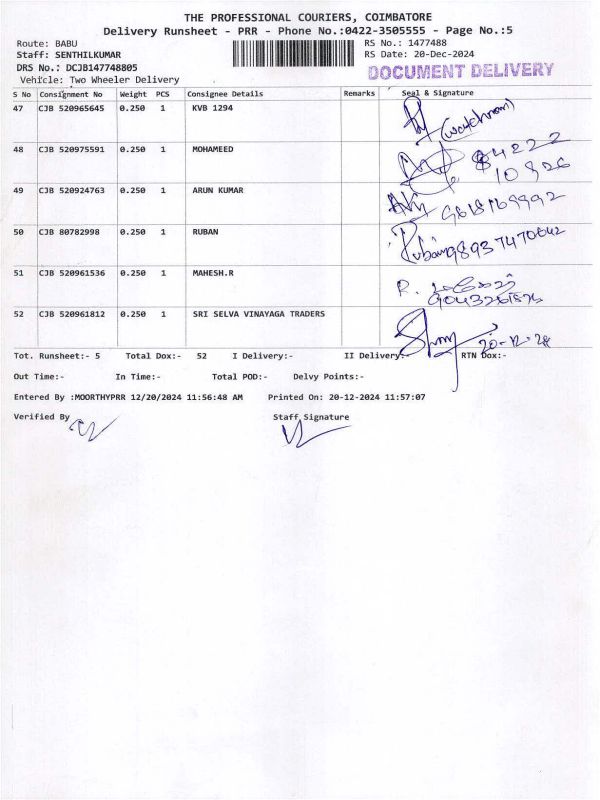 THE PROFESSIONAL COURIERS, COIMBATORE
Delivery Runsheet - PRR - Phone No.:0422-3505555 - Page No.:5
Route: BABU RS No.: 1477488
Staff: SENTHILKUMAR RS Date: 20-Dec-2024
DRS No.: DCJB147748805
DOCUMENT DELIVERY
Vehicle: Two Wheeler Delivery
S No Consignment No Weight PCS Consignee Details Remarks Seal & Signature
47 CJB 520965645 0.250 1 KVB 1294
(watchman)
48 CJB 520975591 0.250 1 MOHAMEED
84222
10926
49 CJB 520924763 0.250 1 ARUN KUMAR
50 CJB 80782998 0.250 1 RUBAN
Ruban
51 CJB 520961536 0.250 1 MAHESH.R
R.
52 CJB 520961812 0.250 1 SRI SELVA VINAYAGA TRADERS
20-12-24
Tot. Runsheet:- 5 Total Dox:- 52 I Delivery:- II Delivery:- RTN Dox:-
Out Time:- In Time:- Total POD:- Delvy Points:-
Entered By :MOORTHYPRR 12/20/2024 11:56:48 AM Printed On: 20-12-2024 11:57:07
Verified By Staff Signature